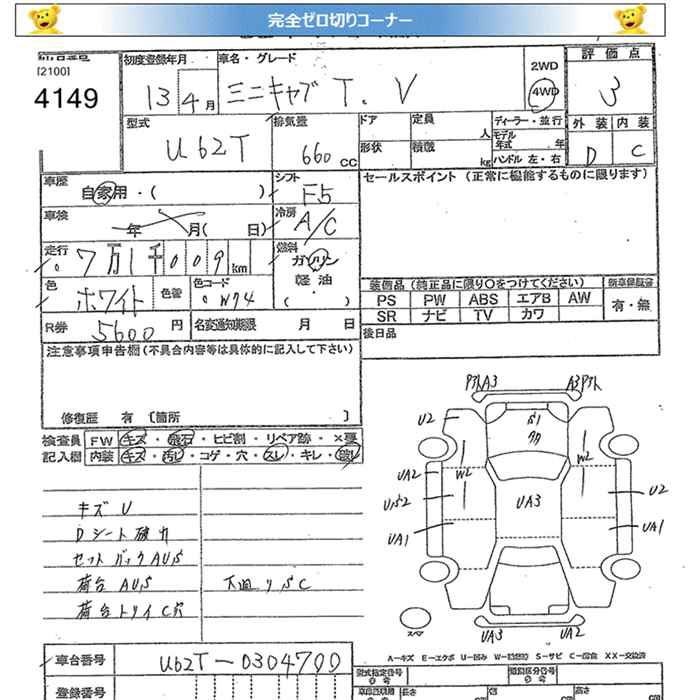 完全ゼロ切りコーナー
[2100]
4149
初度登録年月
13 4月
車名・グレード
ミニキャブ T. V
2WD
4WD
評価点
3
型式
U62T
排気量
660 cc
ドア
形状
定員
人
積載
kg
ディーラー・並行
モデル年式
年
ハンドル 左・右
外装
内装
D
C
車歴
自家用・( )
シフト
F5
セールスポイント (正常に機能するものに限ります)
車検
年 月( 日)
冷房
A/C
走行
7万1千009km
燃料
ガソリン
軽油
( )
色
ホワイト
色替
色コード
W74
R券
5600円
名変通知期限 月 日
装備品 (純正品に限り○をつけてください)
新車保証書
PS PW ABS エアB AW
SR ナビ TV カワ
有・無
後日品
注意事項申告欄 (不具合内容等は具体的に記入して下さい)
修復歴 有 [箇所 ]
検査員
記入欄
FW キズ・飛石・ヒビ割・リペア跡・×要
内装 キズ・汚レ・コゲ・穴・スレ・キレ・
キズ U
Dシート破れ
セットバックAUS
荷台 AUS
下廻り SC
荷台トリイC穴
A3
A3
U2
W2
W2
UA2
UA3
U2
UA1
UA1
UA3
UA2
スペア
A-キズ E-エクボ U-凹ミ W-補修跡 S-サビ C-腐食 XX-交換済
車台番号
U62T-0304700
登録番号
型式指定番号
類別区分番号
長さ
幅
高さ